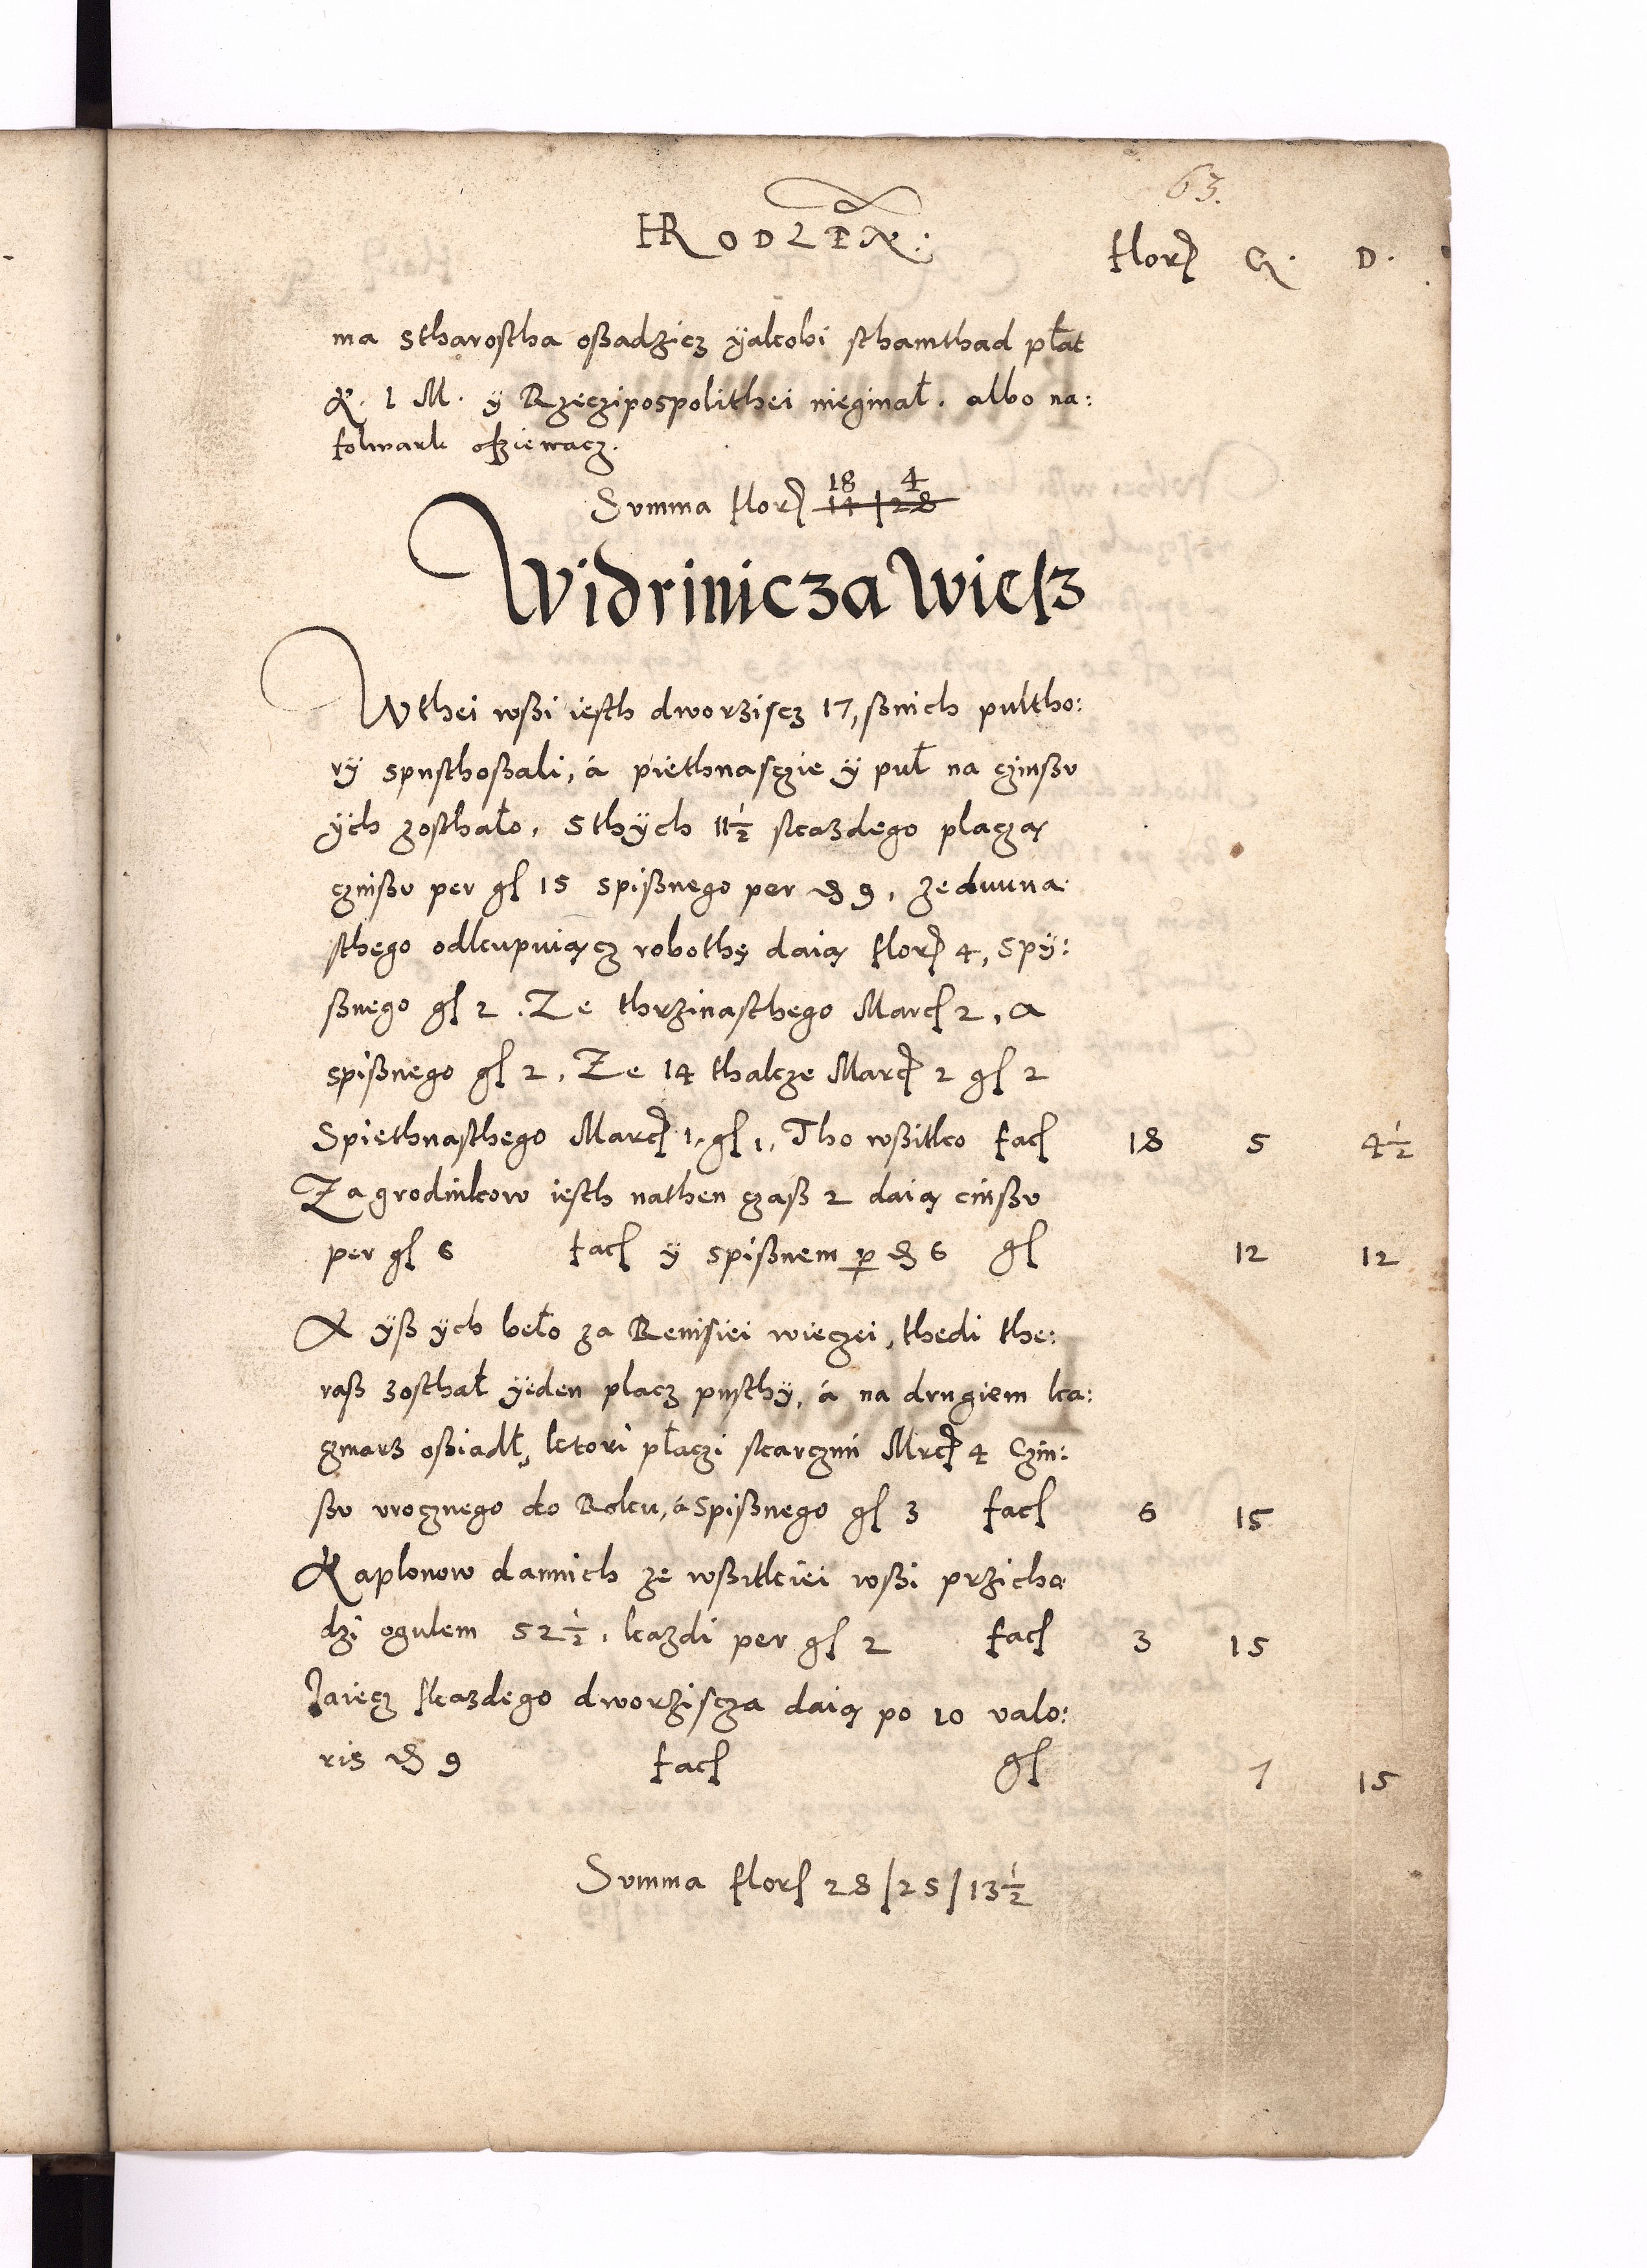 63.
HRODLEN:
flor G. D.
ma stharostha oßadzicz ÿakobi sthamthad płat
K. I M. ÿ Rzeczipospolithei nieginał. albo na:
folwark oßiewacz.
18 4
Summa flor 14|28
Widrinicza Wiesz
Wthei wßi iesth dworziscz 17, ßnich pultho:
rÿ spusthoßali, á piethnasczie ÿ puł na czinßu
ÿch zosthało, Sthÿch 11½ skazdego placzą
czinßu per gł 15 spißnego per d 9, ze dwuna
sthego odkupuiącz robothę daią flor 4, Spÿ:
ßnego gł 2. Ze thrzinasthego Marc 2, A
spißnego gł 2, Ze 14 thakze Marc 2 gł 2
Spiethnasthego Marc 1, gł 1, Tho wßitko fac 18 5 4½
Zagrodnikow iesth nathen czaß 2 daią cinßu
per gł 6 fac ÿ spißnem p d 6 gł 12 12
A ÿß ÿch beło za Reuisiei wieczei, thedi the:
raß zosthał ÿeden placz pusthÿ, á na drugiem ka:
czmarz oßiadł, ktori płaczi skarczmi Mrc 4 Czin:
ßu rocznego do Roku, á Spißnego gł 3 fac 6 15
Kaplonow dannich ze wßitkiei wßi przicho
dzi ogulem 52½, kazdi per gł 2 fac 3 15
Jaiecz skazdego dworzißcza daią po 10 valo:
ris d 9 fac gł 7 15
Summa flor 28/25/13½